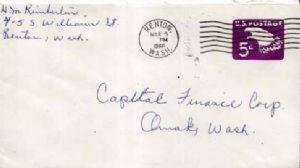 H.M Kimberlin
405 S Williams St.
Renton, Wash.
RENTON
MAR
PM
WASH.
U.S. POSTAGE
5c
Capital Finance Corp.
Omak, Wash.